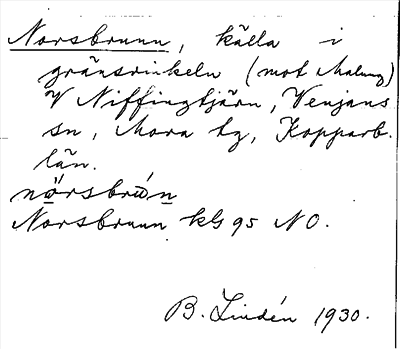 Norsbrunn, källa i
gränsvinkeln (mot Malung)
V Niffingtjärn, Venjans
sn, Mora tg, Kopparb.
län.
nörsbrún
Norsbrunn kbl 95 NO.
B. Lindén 1930.